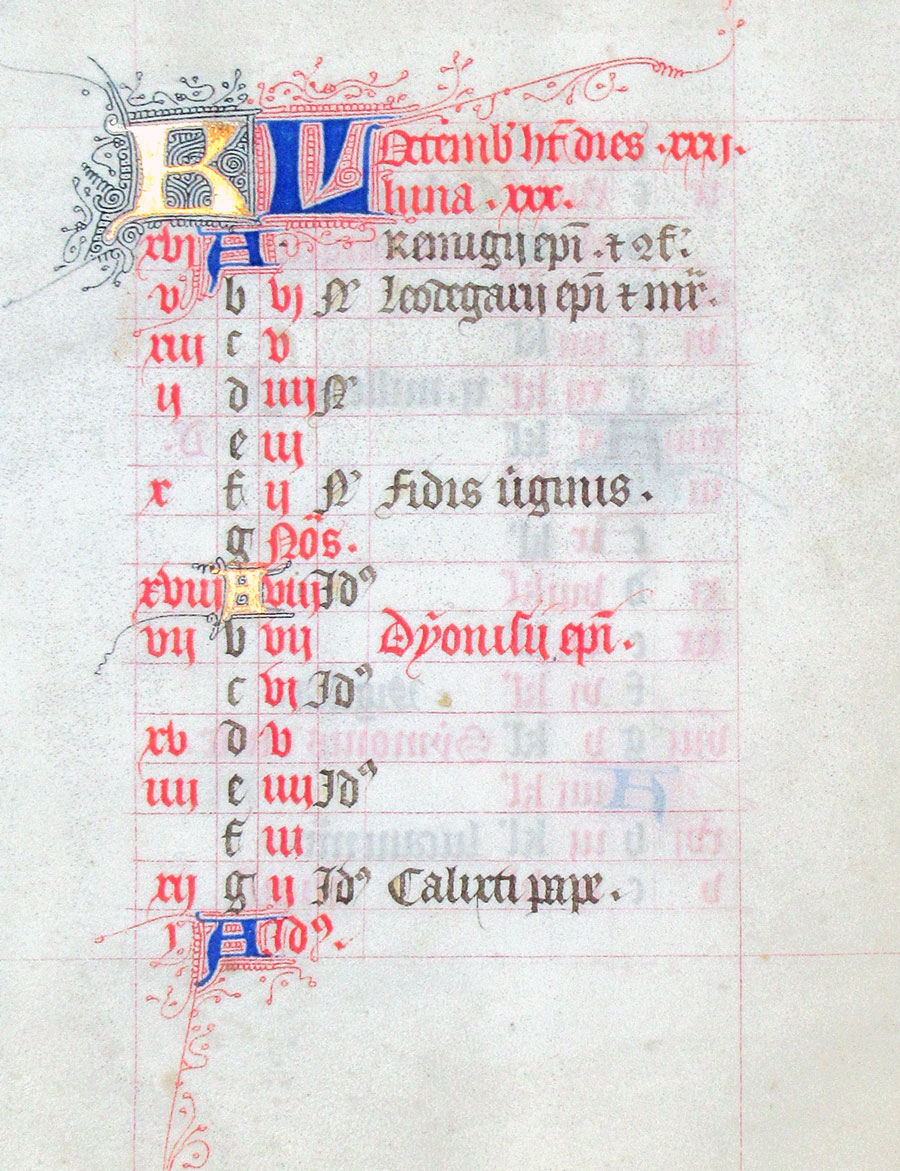 KL Octemb' ht̄ dies .xxxj.
luna .xxx.
xvj A . Remigij ep̄i . ⁊ 2f.
v b vj N' Leodegarij ep̄i ⁊ mr̄.
xiij c v
ij d iiij N'
e iij
x f ij N' Fidis v̄ginis .
g No᷒s.
xviij A viij Jdꝰ
vij b vij Dyonisij ep̄i.
c vj Jdꝰ
xv d v
iiij e iiij Jdꝰ
f iii
xij g ij Jdꝰ Calixti pape .
j A Idꝰ.